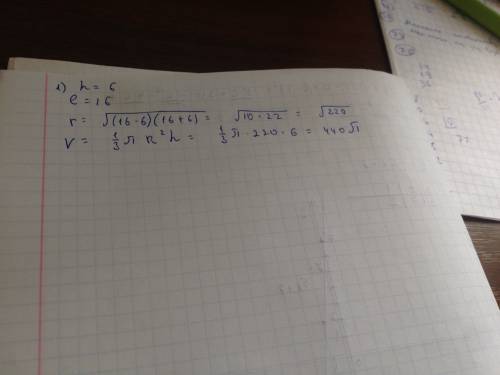 1) h = 6
e = 16
r = √(16-6)(16+6) = √10·22 = √220
V = 1/3 π R²h = 1/3 π · 220 · 6 = 440π